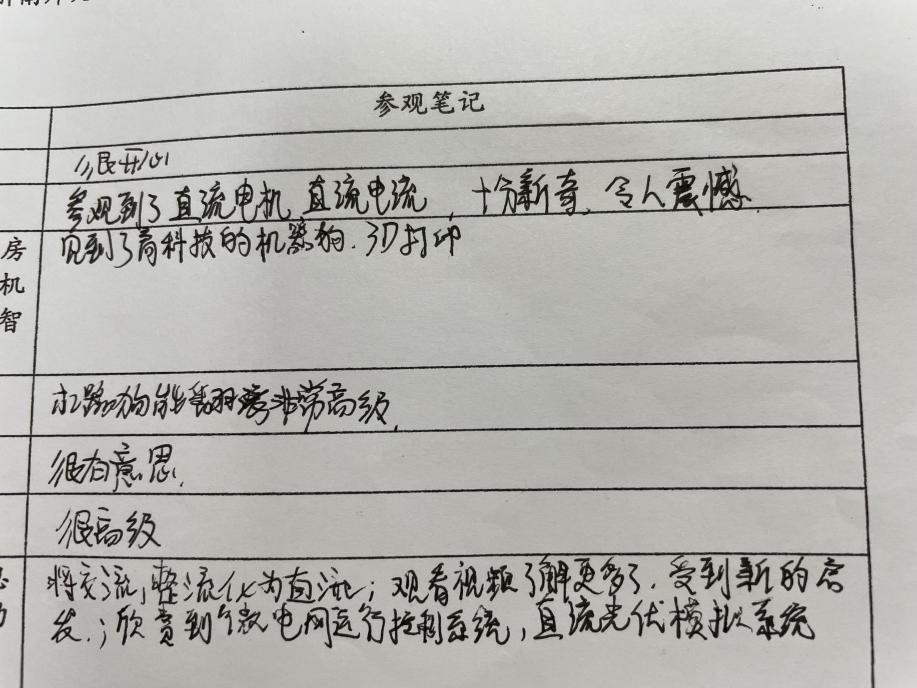 参观笔记
很开心
参观到了直流电机、直流电流，十分新奇、令人震撼.
房
机
智
见到了高科技的机器狗.3D打印
机器狗能翻 非常高级.
很有意思.
很高级
将交流,整流化为直流;观看视频了解更多了.受到新的启
发.;欣赏到 电网运行控制系统,直流光伏模拟系统